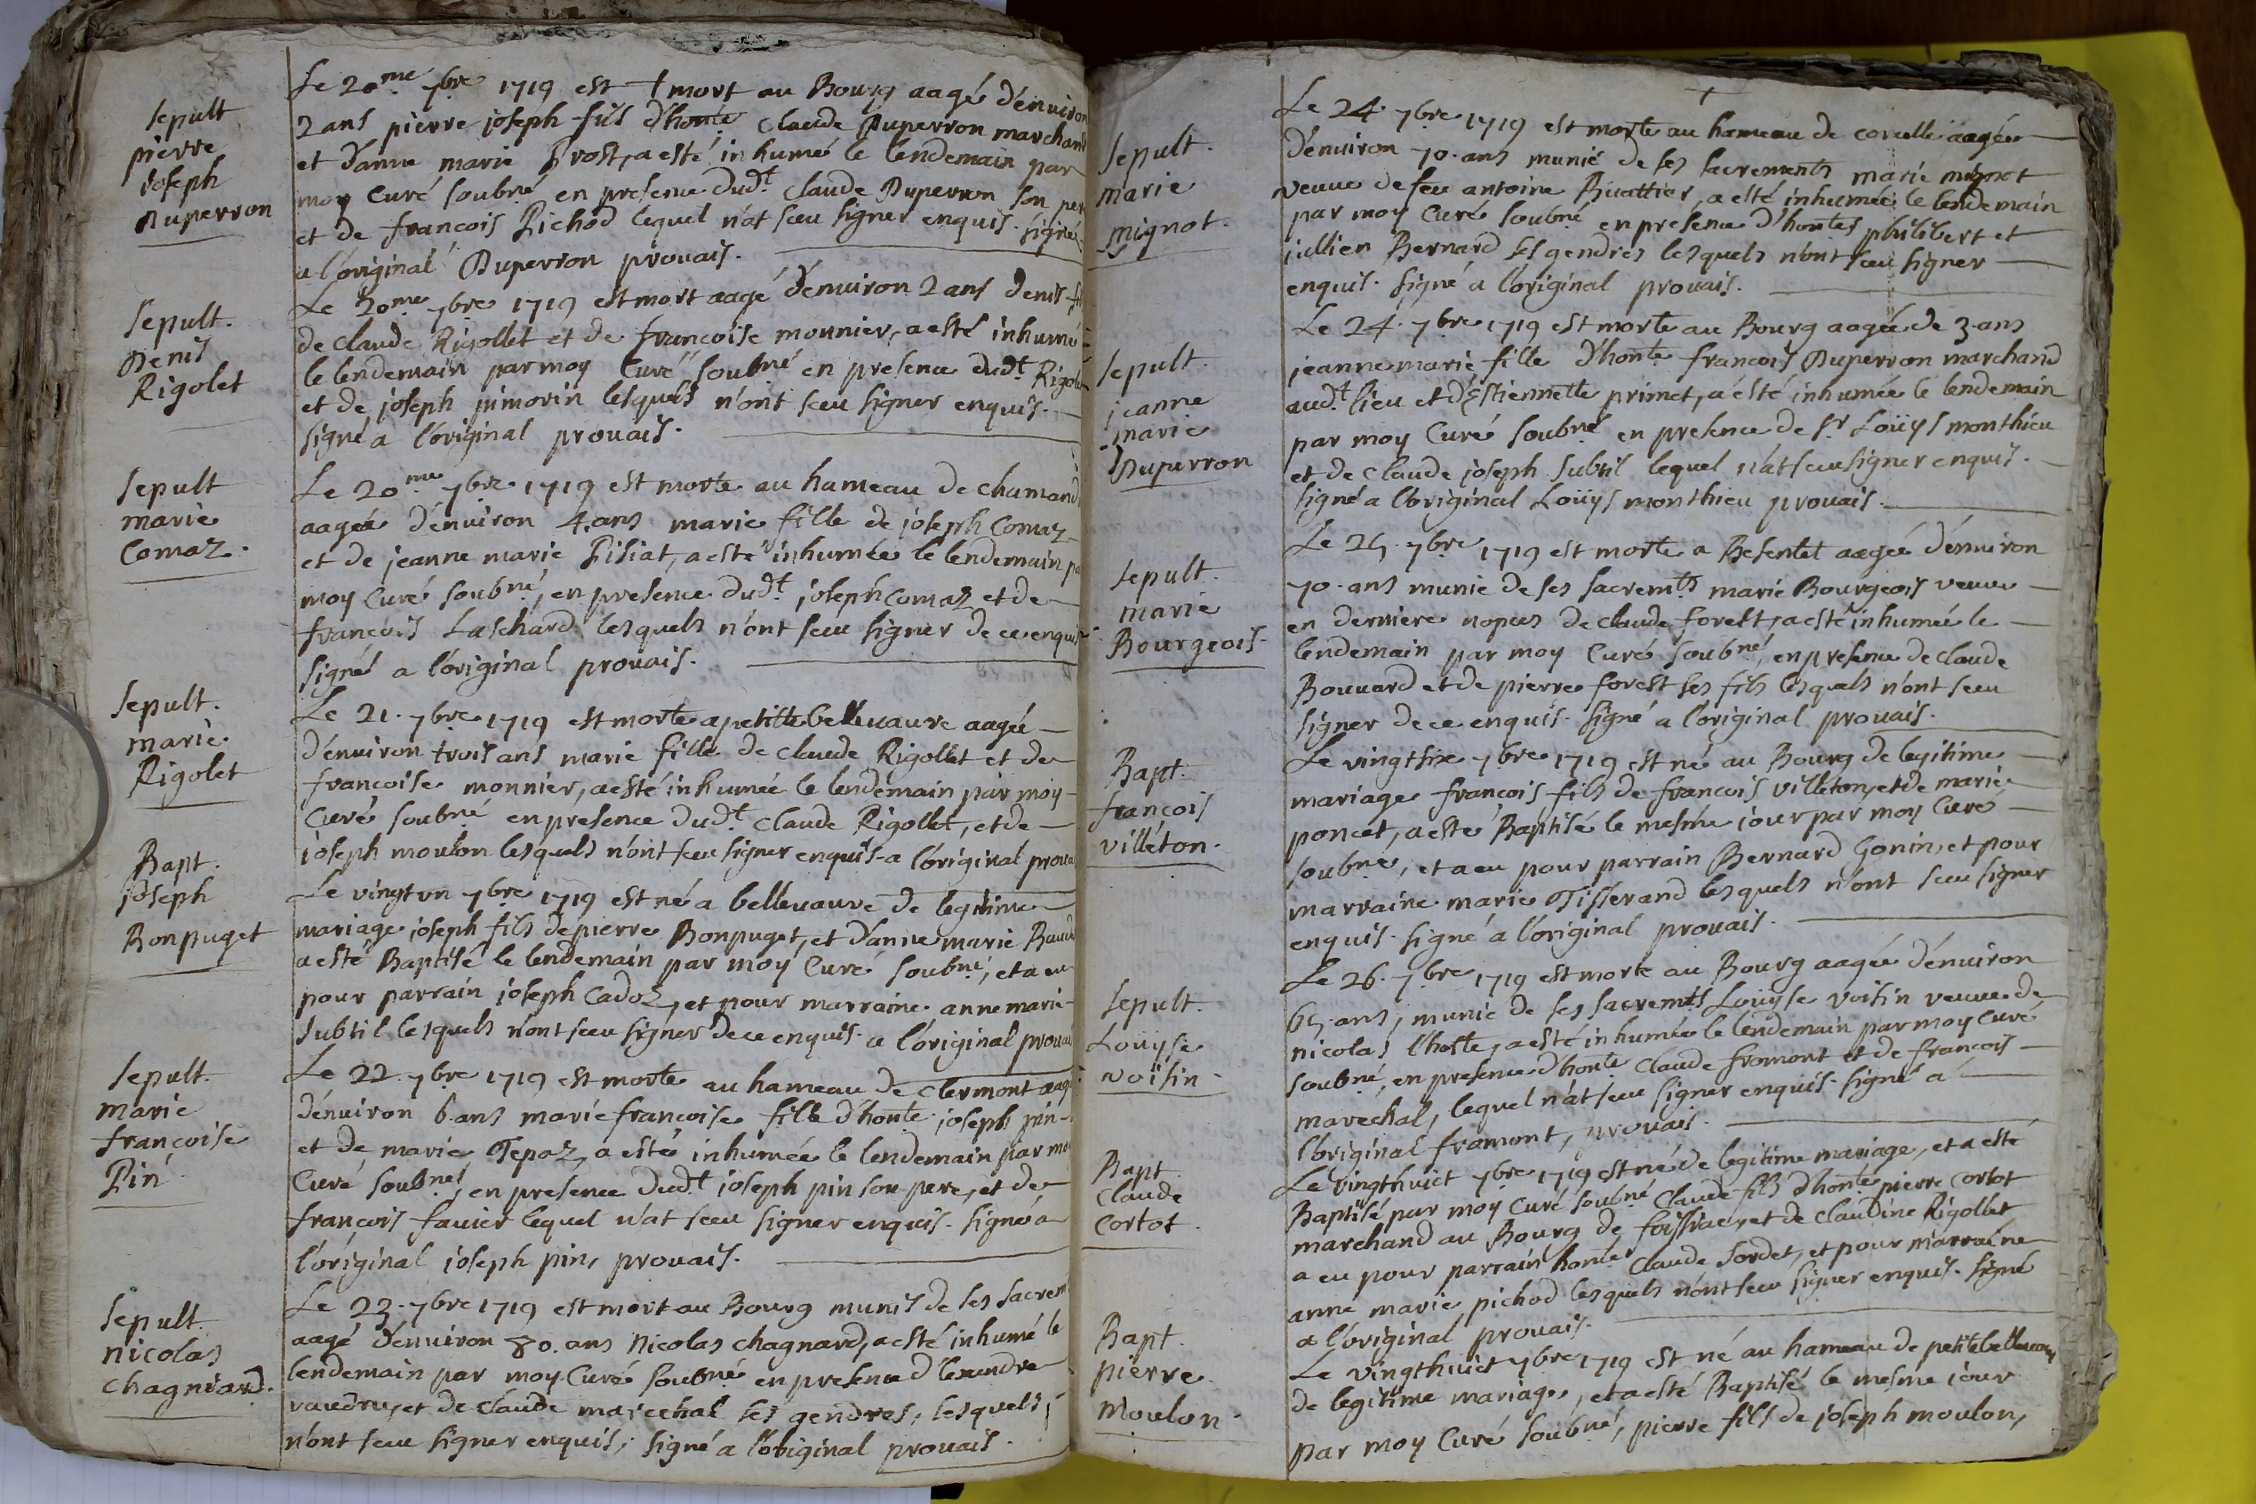 sepult
pierre
joseph
Duperron
Le 20me 7bre 1719 est mort au Bourg aagé d'enuiron
2 ans pierre joseph fils d'honte Claude Duperron marchand
et d'anne marie Prost, a esté inhumé le lendemain par
moy Curé soubné en presence dudt Claude Duperron son per
et de francois Pichod lequel n'at sceu signer enquis. signé
a l'original Duperron prouais.
sepult.
Denis
Rigolet
Le 20me 7bre 1719 est mort aagé d'enuiron 2 ans denis
de claude Rigollet et de francoise monnier, a esté inhumé
le lendemain par moy Curé soubné en presence dudt
et de joseph jumorin lesquels n'ont sceu signer enquis.
signé a l'original prouais.
sepult
marie
Comaz.
Le 20me 7bre 1719 est morte au hameau de chamandé
aagée d'enuiron 4 ans marie fille de joseph Comaz
et de jeanne marie Piliat, a esté inhumée le lendemain
moy Curé soubné, en presence dudt joseph comaz et de
francois Laschard lesquels n'ont sceu signer de ce enquis
signé a l'original prouais.
sepult.
marie
Rigolet
Le 21. 7bre 1719 est morte a petitte belleuaure aagée
d'enuiron trois ans marie fille de claude Rigollet et de
francoise monnier, a esté inhumée le lendemain par moy
Curé soubné en presence dudt claude Rigollet, et de
joseph moulon lesquels n'ont sceu signer enquis. a l'original
Bapt.
joseph
Bonpuget
Le vingt vn 7bre 1719 est né a belleuaure de legitime
mariage joseph fils de pierre Bonpuget, et d'anne marie
a esté Baptisé le lendemain par moy Curé soubné, et a eu
pour parrain joseph Cadoz, et pour marraine anne marie
subtil lesquels n'ont sceu signer de ce enquis. a l'original
sepult.
marie
françoise
Pin.
Le 22. 7bre 1719 est morte au hameau de clermont
d'enuiron 6 ans marie francoise fille d'honte joseph pin
et de marie Tepaz, a esté inhumée le lendemain par
Curé soubné, en presence dudt joseph pin son pere, et de
françois fauier lequel n'at sceu signer enquis. signé a
l'original joseph pin, prouais.
sepult.
nicolas
chagniard.
Le 23. 7bre 1719 est mort au Bourg munis de ses sacrem
aagé d'enuiron 80. ans Nicolas chagnard, a esté inhumé le
lendemain par moy Curé soubné en presence d'lexandre
vaudru, et de Claude marechal ses gendres, lesquels
n'ont sceu signer enquis, signé a l'original prouais.
sepult.
marie
mignot.
Le 24. 7bre 1719 est morte au hameau de corcelle aagée
d'enuiron 70. ans munie de ses sacrements marie mignot
veuue de feu antoine Buattier, a esté inhumée le lendemain
par moy Curé soubné en presence d'hontes philibert et
jullien Bernard ses gendres lesquels n'ont sceu signer
enquis. signé a l'original prouais.
sepult.
jeanne
marie
Duperron
Le 24. 7bre 1719 est morte au Bourg aagée de 3 ans
jeanne marie fille d'honte francois Duperron marchand
audt lieu et d'Estiennette primet, a esté inhumée le lendemain
par moy Curé soubné en presence de sr Loüys monthieu
et de Claude joseph subtil lequel n'at sceu signer enquis.
signé a l'original Loüys monthieu prouais.
sepult.
marie
Bourgeois.
Le 25. 7bre 1719 est morte a Besentet aagée d'enuiron
70. ans munie de ses sacremts marie Bourgeois veuue
en derniere nopces de claude forest, a esté inhumée le
lendemain par moy Curé soubné, en presence de claude
Bouuard et de pierre forest ses fils lesquels n'ont sceu
signer de ce enquis. signé a l'original prouais.
Bapt.
françois
villéton.
Le vingtsix 7bre 1719 est né au Bourg de legitime
mariage francois fils de francois villeton, et de marie
poncet, a esté Baptisé le mesme iour par moy Curé
soubné, et a eu pour parrain Bernard Gonin, et pour
marraine marie Tisserand lesquels n'ont sceu signer
enquis. signé a l'original prouais.
sepult.
Loüyse
voisin
Le 26. 7bre 1719 est morte au Bourg aagée d'enuiron
65. ans, munie de ses sacremts Loüyse voisin veuue de
nicolas l'hoste, a esté inhumée le lendemain par moy Curé
soubné, en presence d'honte Claude fromont et de françois
marechal, lequel n'at sceu signer enquis. signé a
l'original framont, prouais.
Bapt
Claude
cortot.
Le vingthuict 7bre 1719 est né de legitime mariage, et a esté
Baptisé par moy Curé soubné Claude fils d'honte pierre cortot
marchand au Bourg de foissiac, et de claudine Rigollet
a eu pour parrain honte Claude Sordet, et pour marraine
anne marie pichod lesquels n'ont sceu signer enquis. signé
a l'original prouais.
Bapt.
pierre
Moulon
Le vingthuict 7bre 1719 est né au hameau de petitebelleuaure
de legitime mariage, et a esté Baptisé le mesme iour
par moy Curé soubné, pierre fils de joseph moulon,